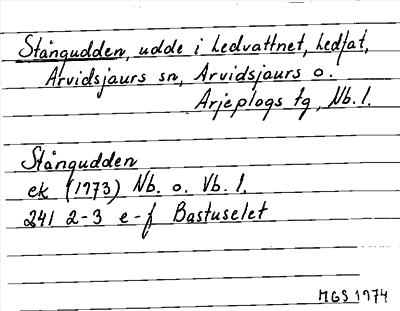 Stångudden, udde i Ledvattnet, Ledfat,
Arvidsjaurs sn, Arvidsjaurs o.
Arjeplogs tg, Nb. l.
Stångudden
ek (1973) Nb. o. Vb. l.
241 2-3 e-f Bastuselet
MGS 1974